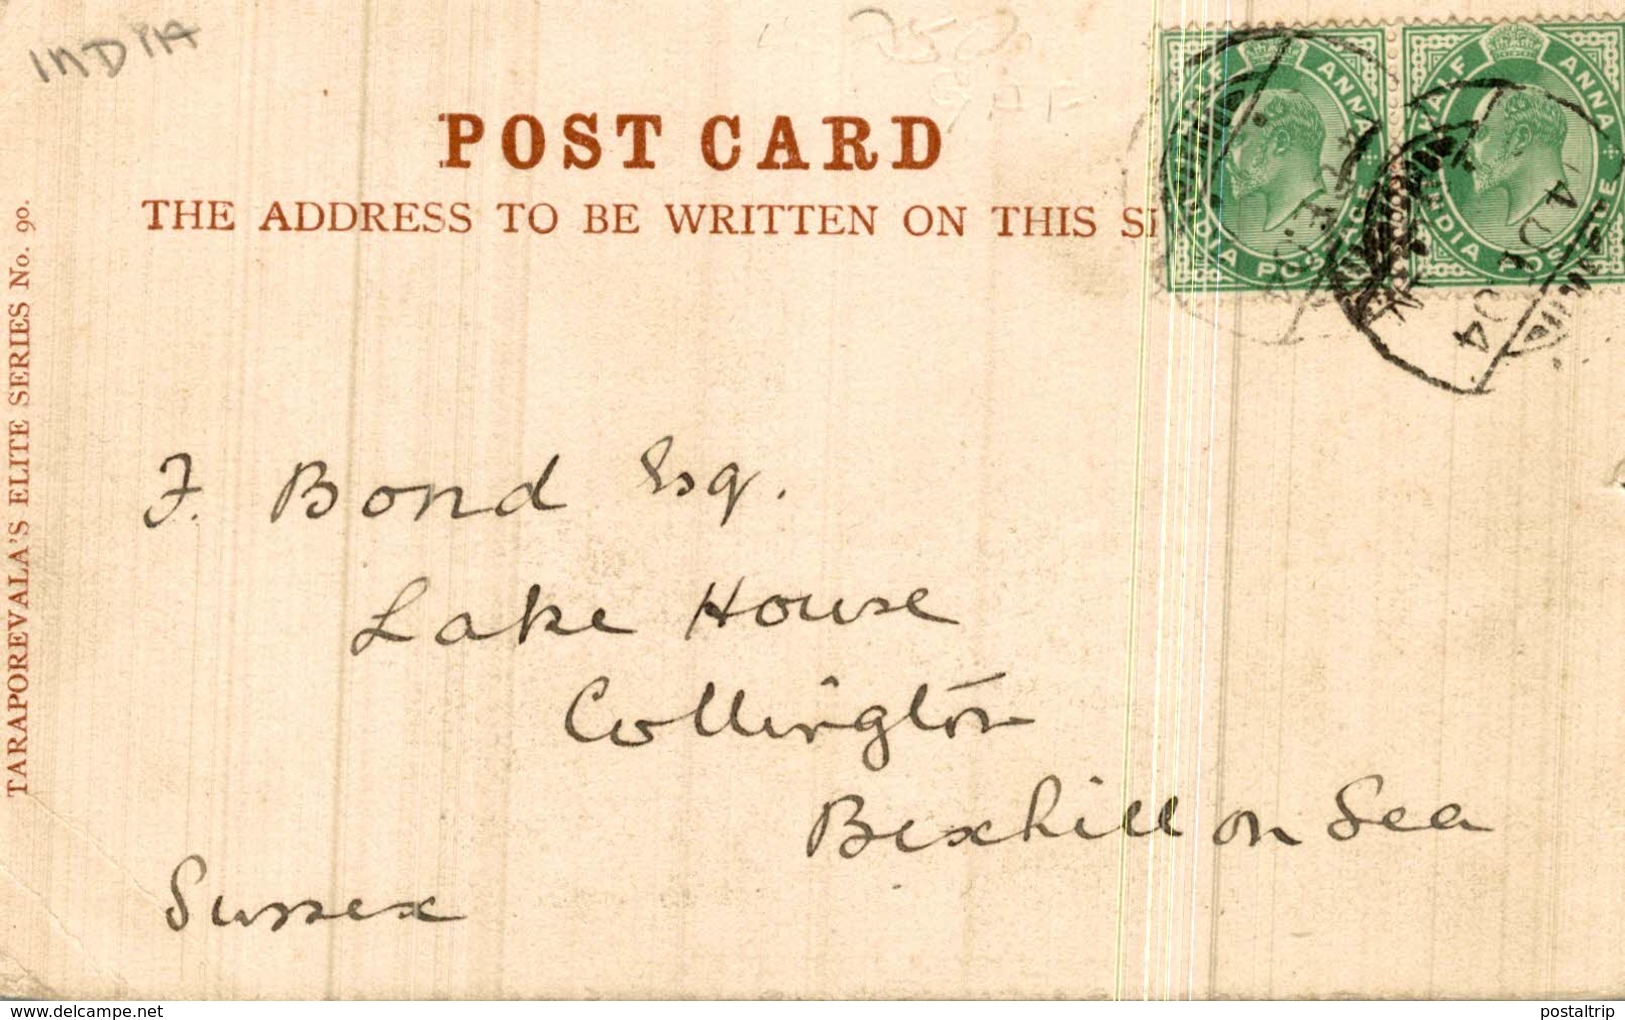 INDIA
POST CARD
THE ADDRESS TO BE WRITTEN ON THIS SI
HALF ANNA
INDIA POSTAGE
HALF ANNA
INDIA POSTAGE
4 DE 04
TARAPOREVALA'S ELITE SERIES No. 90.
F. Bond Esq.
Lake House
Collington
Bexhill on Sea
Sussex
delcampe.net
postaltrip